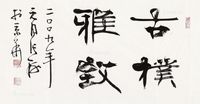 古樸
雅致
二〇〇九年
元月
於京華